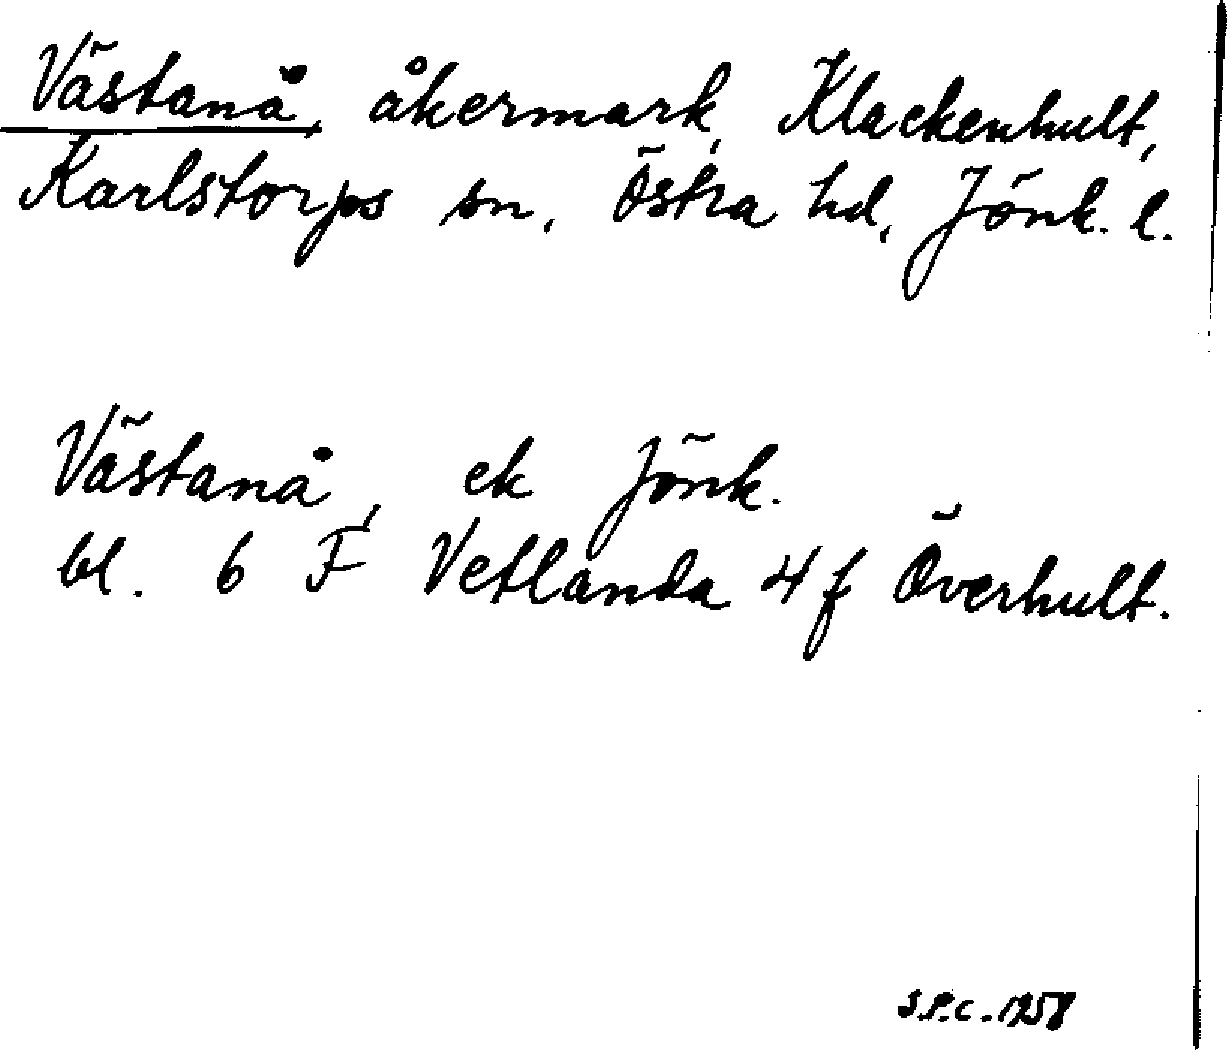 Västanå, åkermark, Klackenhult,
Karlstorps sn, Östra hd, Jönk. l.
Västanå, ek Jönk.
bl. 6 F Vetlanda 4 f Överhult.
S.P.C. 1958